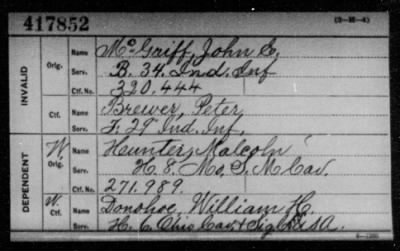 417852
(3-H-4)
INVALID
Orig.
Name McGriff, John C.
Serv. B. 34. Ind. Inf
Ctf. No. 320,444
Ctf.
Name Brewer, Peter
Serv. F. 29 Ind. Inf.
DEPENDENT
W.
Orig.
Name Hunter, Malcolm
Serv. H. 8. Mo. S. M Cav.
Ctf. No. 271.989.
W.
Ctf.
Name Donohoe, William H.
Serv. H. 6. Ohio Cav. & Sig.